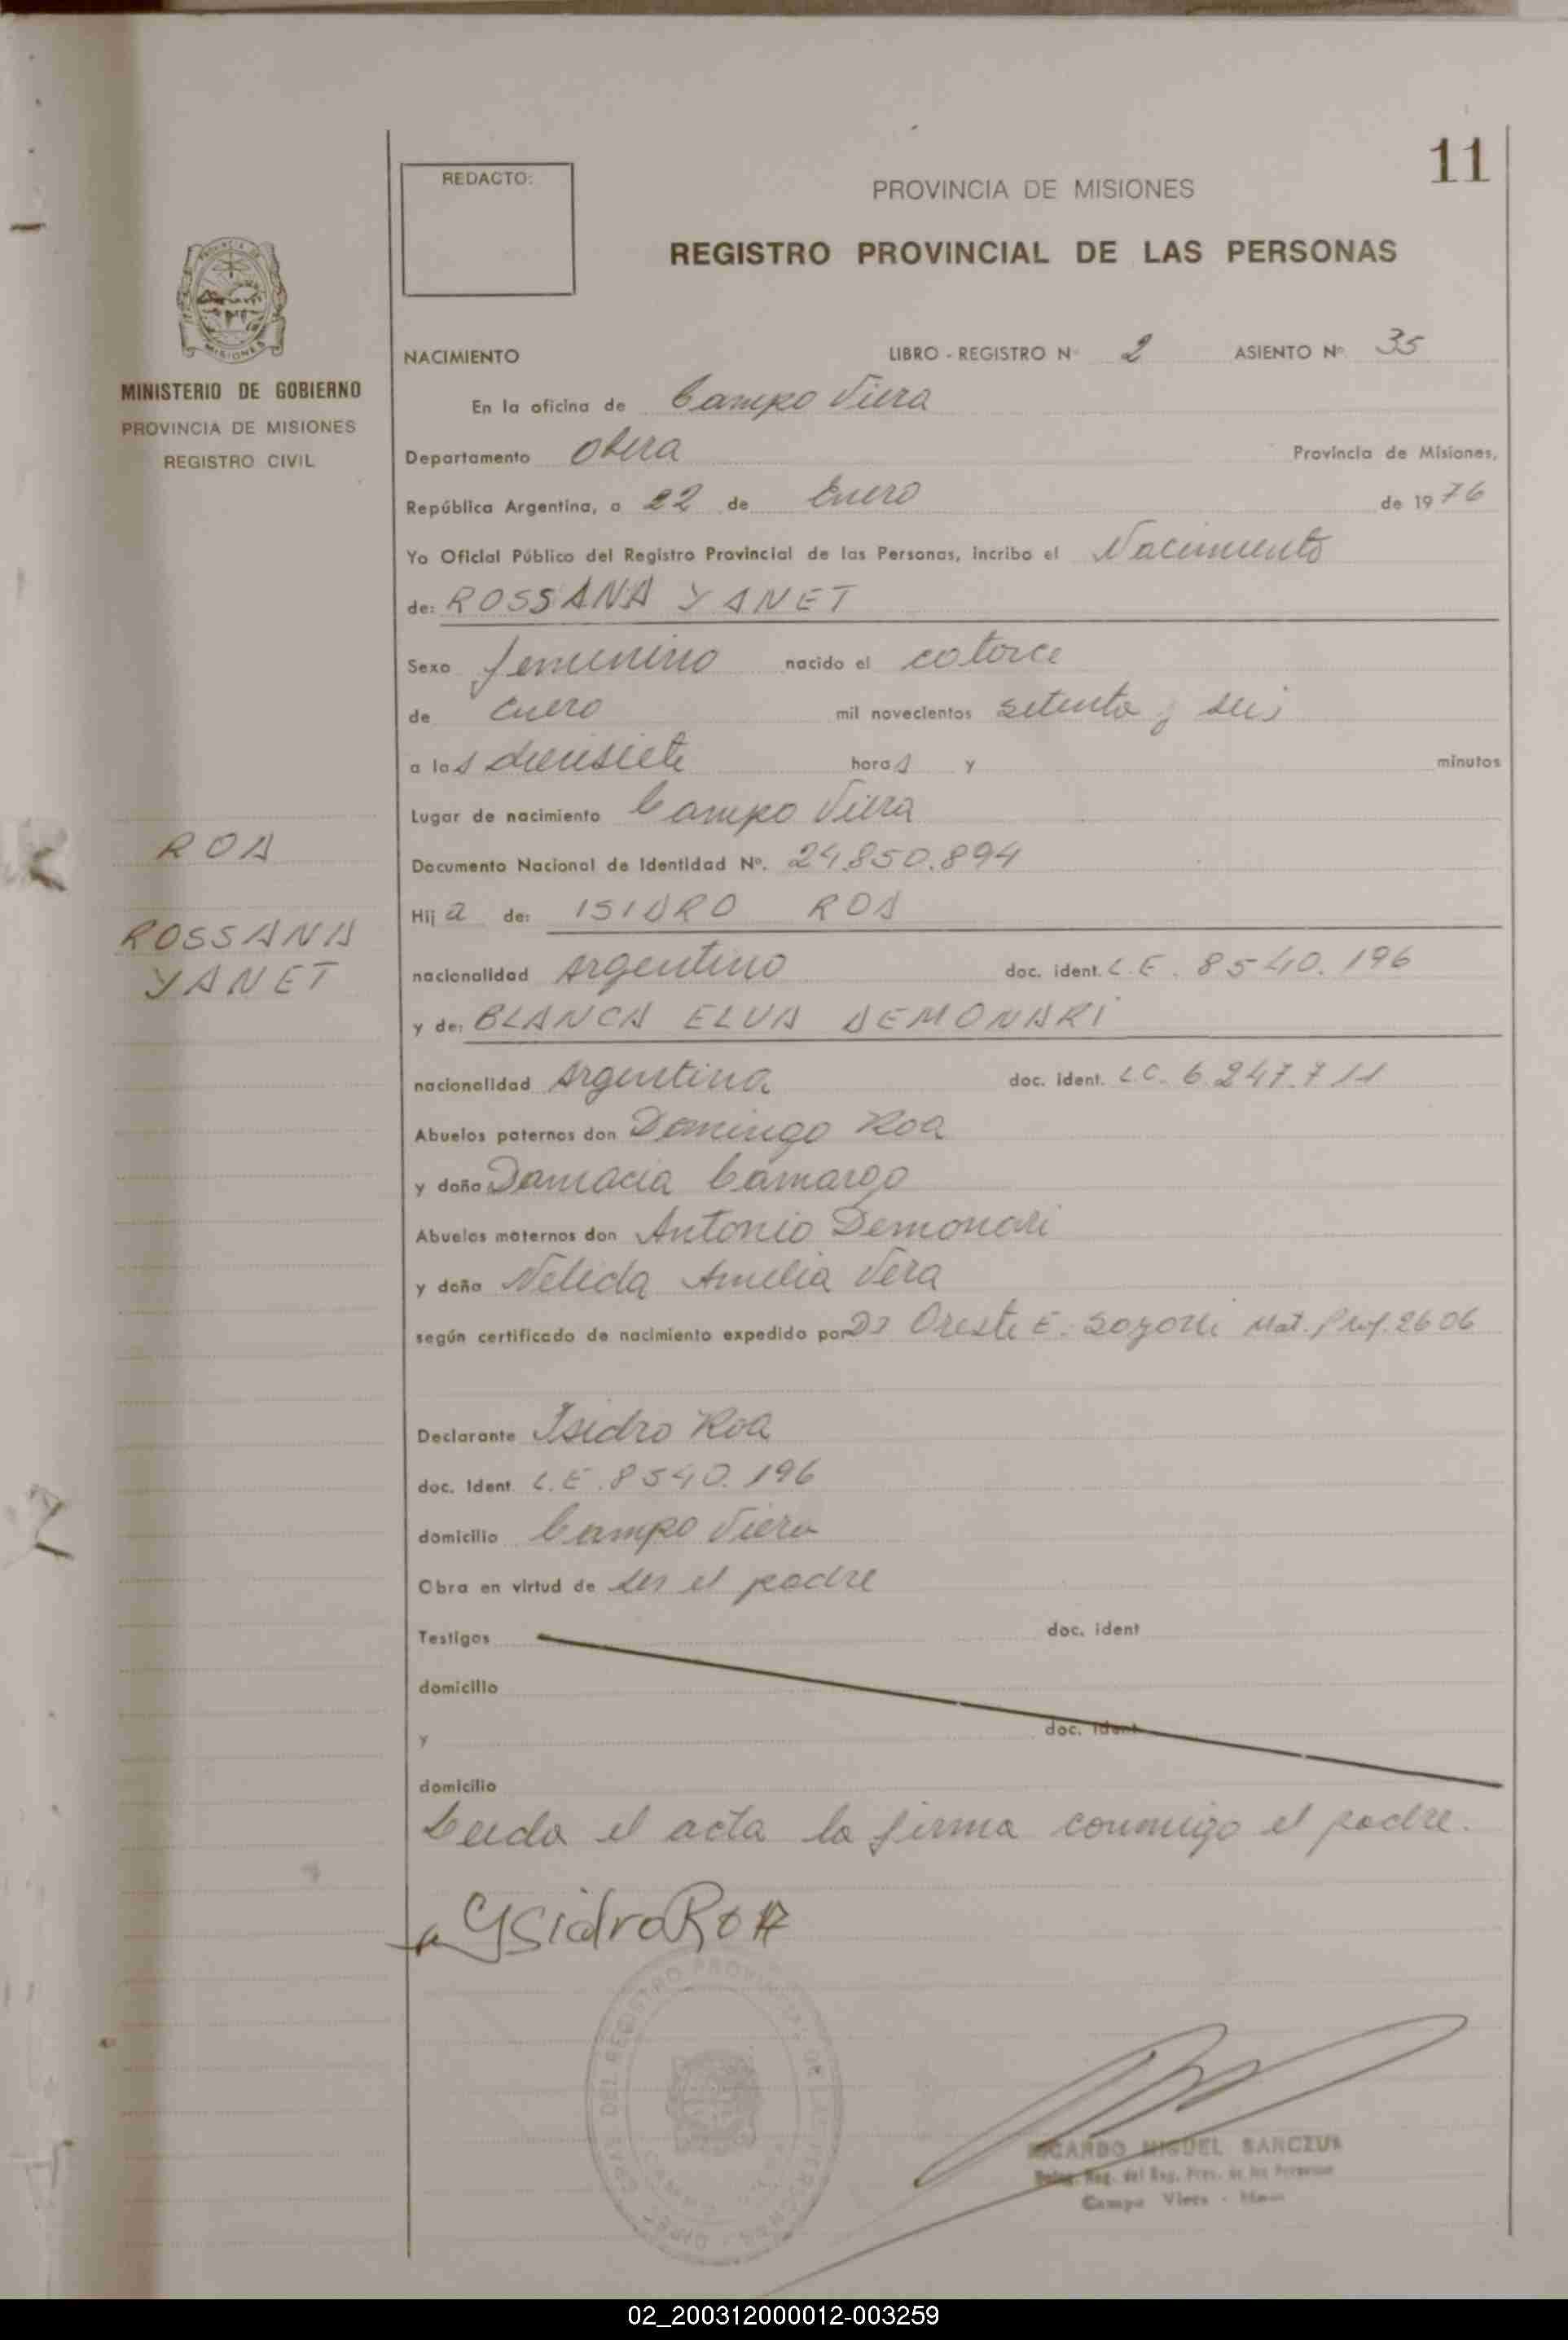 11
REDACTO:
PROVINCIA DE MISIONES
REGISTRO PROVINCIAL DE LAS PERSONAS
MISIONES
MINISTERIO DE GOBIERNO
PROVINCIA DE MISIONES
REGISTRO CIVIL
ROA
ROSSANA
YANET
NACIMIENTO LIBRO - REGISTRO Nº 2 ASIENTO Nº 35
En la oficina de Campo Viera
Departamento Obera Provincia de Misiones,
República Argentina, a 22 de Enero de 1976
Yo Oficial Público del Registro Provincial de las Personas, incribo el Nacimiento
de: ROSSANA YANET
Sexo femenino nacido el catorce
de Enero mil novecientos setenta y seis
a las diecisiete horas y minutos
Lugar de nacimiento Campo Viera
Documento Nacional de Identidad Nº. 24.850.894
Hija de: ISIDRO ROA
nacionalidad Argentino doc. ident. L.E. 8540.196
y de: BLANCA ELVA DEMONARI
nacionalidad Argentina doc. ident. L.C. 6.247.711
Abuelos paternos don Domingo Roa
y doña Damacia Camargo
Abuelos maternos don Antonio Demonari
y doña Nelida Amelia Vera
según certificado de nacimiento expedido por Dr Oreste E. Mat. Prof. 2606
Declarante Isidro Roa
doc. Ident. L.E. 8540.196
domicilio Campo Viera
Obra en virtud de ser el padre
Testigos doc. ident
domicilio
y doc. Ident
domicilio
Leida el acta la firma conmigo el padre.
Ysidro Roa
RICARDO MIGUEL SANCZUK
del Reg. Prov. de las Personas
Campo Viera - Mnes
02_200312000012-003259